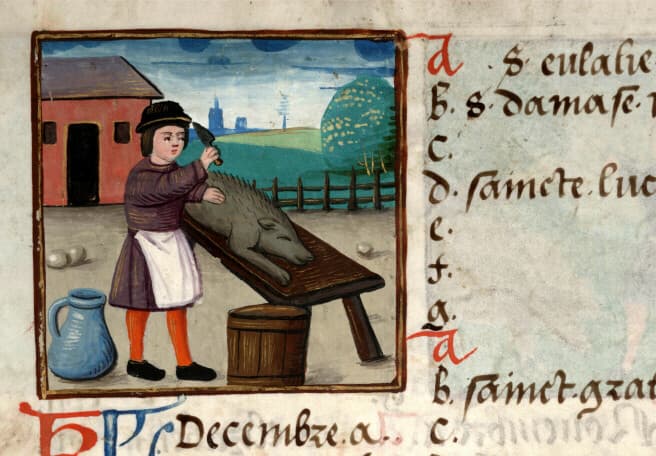 A · S· eulalie
b. S· damase·
C.
d. saincte.luc
e.
f.
g.
A
b. sainct.grat
Decembre.a.. C.